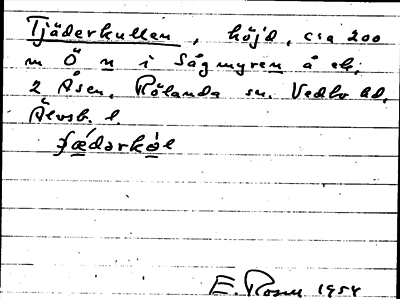 Tjäderkullen, höjd, c:a 200
m Ö n i Sågmyren å ek;
2 Åsen, Rölanda sn. Vedbo hd,
Älvsb. l.
E. Rosm 1954